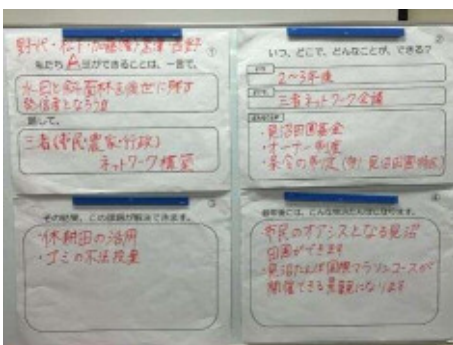 野代・松下・加藤(隆)・
私たち A 班ができることは、一言で、 ①
水田と斜面林を後世に残す
発信者となろう!!
略して、
三者(市民・農家・行政)
ネットワーク構築
②
いつ、どこで、どんなことが、できる?
2〜3年後
三者ネットワーク会議
・見沼田圃基金
・オーナー制度
・条令の制定
③
その結果、この課題が解決できます。
・休耕田の活用
・ゴミの不法投棄
④
・市民のオアシスとなる見沼
田圃ができます
・見沼たんぼ国際マラソンコースが
開催できる景観になります